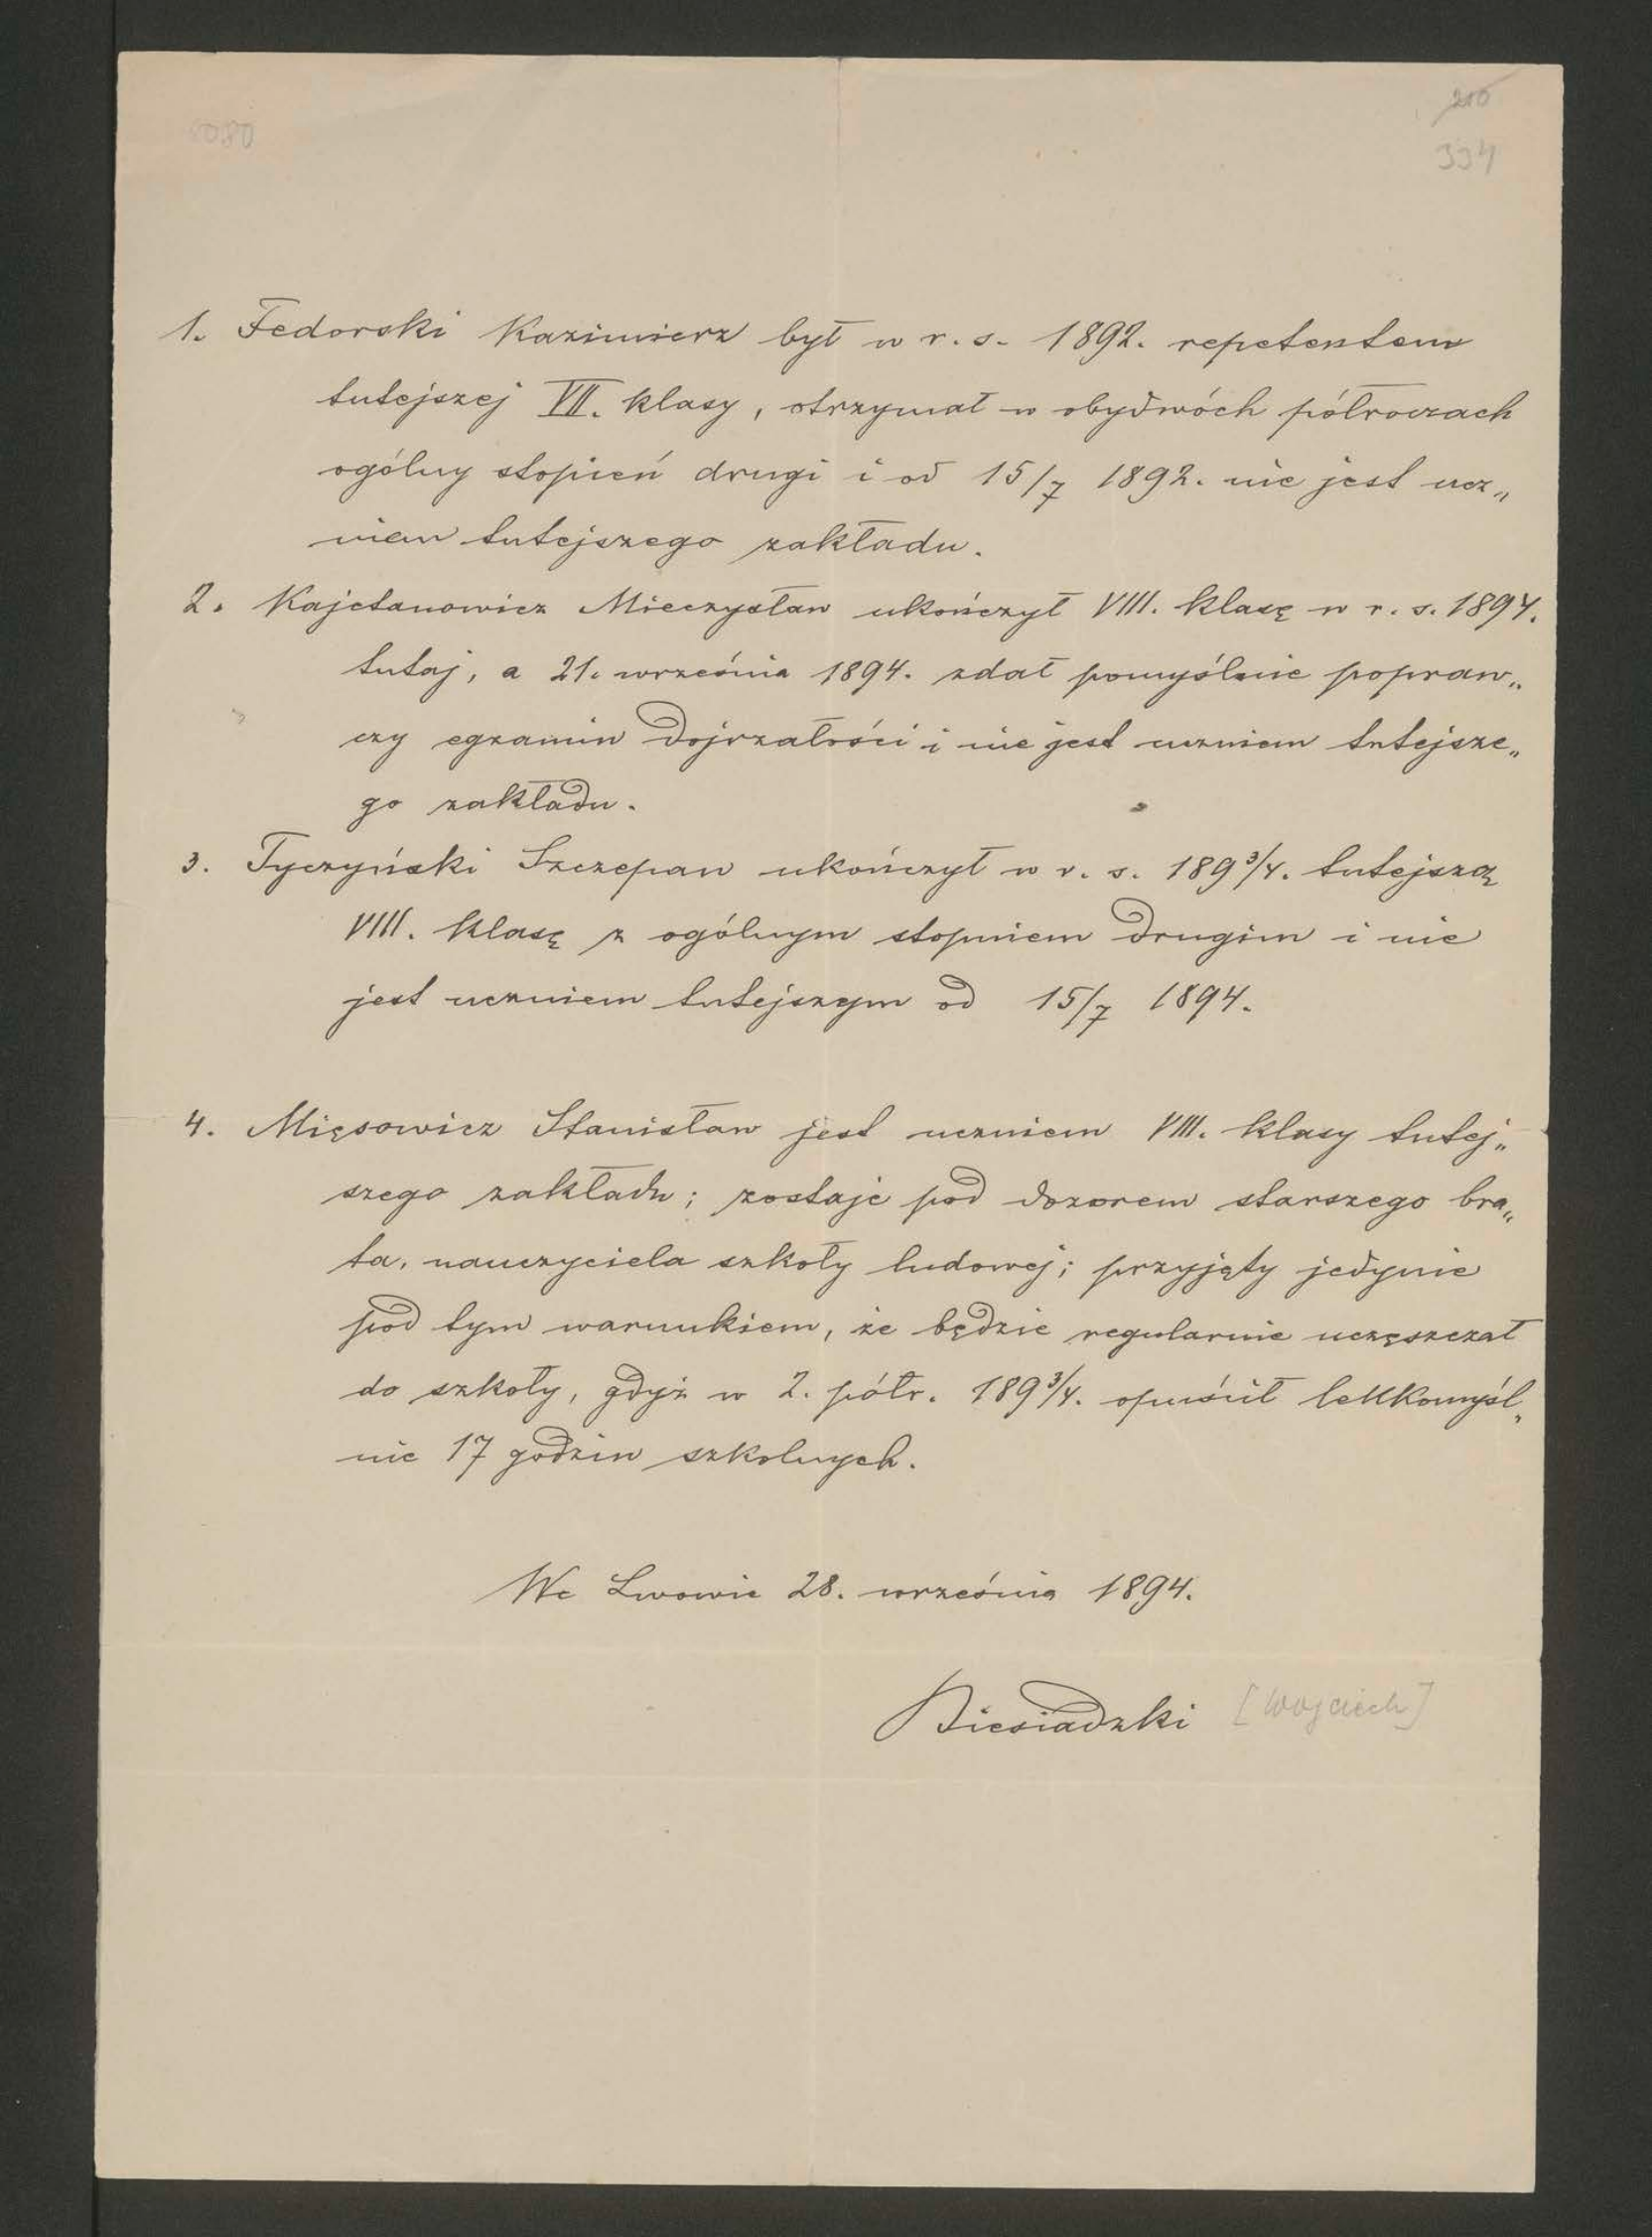 210
334
1. Fedorski Kazimierz był w r. s. 1892. repetentem
tutejszej VII. klasy, otrzymał w obydwóch półroczach
ogólny stopień drugi i od 15/7 1892. nie jest ucz„
niem tutejszego zakładu.
2. Kajetanowicz Mieczysław ukończył VIII. klasę w r. s. 1894.
tutaj, a 21. września 1894. zdał pomyślnie popraw„
czy egzamin dojrzałości i nie jest uczniem tutejsze„
go zakładu.
3. Tyczyński Szczepan ukończył w r. s. 189 3/4. tutejszą
VIII. klasę z ogólnym stopniem drugim i nie
jest uczniem tutejszym od 15/7 1894.
4. Mięsowicz Stanisław jest uczniem VIII. klasy tutej„
szego zakładu; zostaje pod dozorem starszego bra„
ta, nauczyciela szkoły ludowej; przyjęty jedynie
pod tym warunkiem, że będzie regularnie uczęszczał
do szkoły, gdyż w 2. półr. 189 3/4. opuścił lekkomyśl„
nie 17 godzin szkolnych.
We Lwowie 28. września 1894.
Biesiadzki [Wojciech]